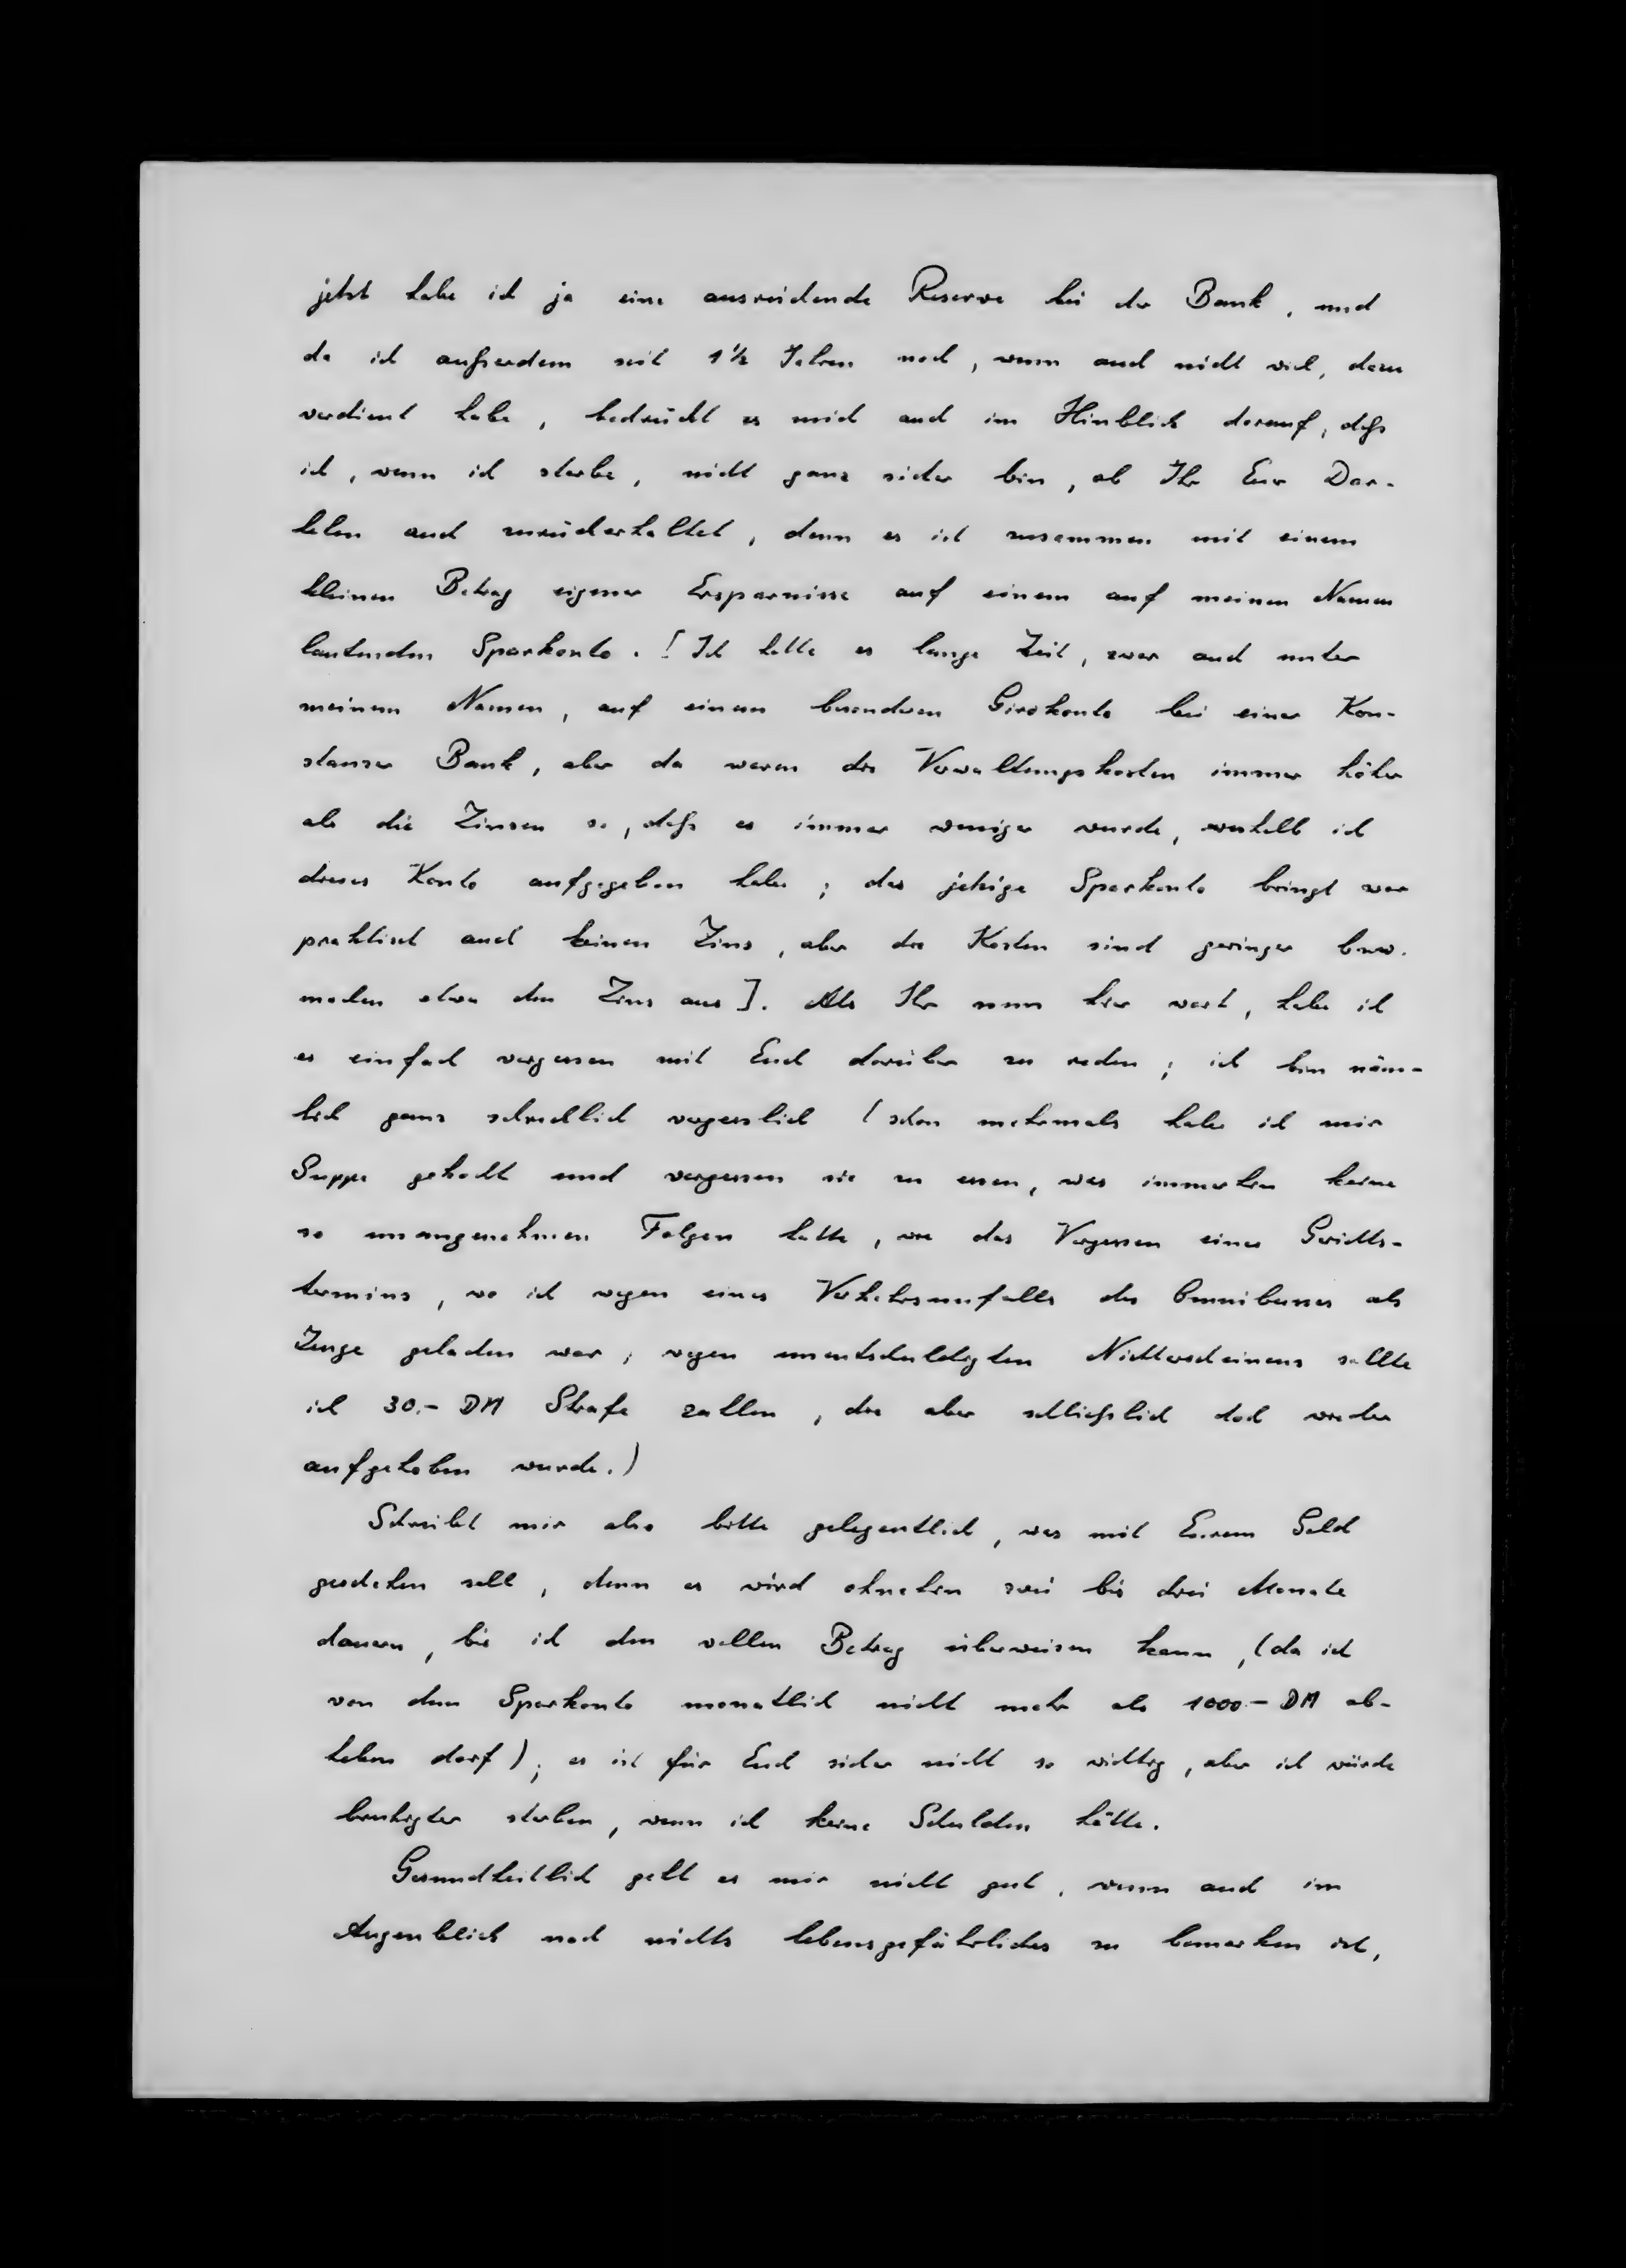 jetzt habe ich ja eine ausreichende Reserve bei der Bank, und
da ich außerdem seit 1½ Jahren noch, wenn auch nicht viel, dazu
verdient habe, bedrückt es mich auch im Hinblick darauf, daß
ich, wenn ich sterbe, nicht ganz sicher bin, ob Ihr Euer Dar-
lehen auch zurückerhaltet, denn es ist zusammen mit einem
kleinen Betrag eigener Ersparnisse auf einem auf meinen Namen
lautenden Sparkonto. [Ich hatte es lange Zeit, zwar auch unter
meinem Namen, auf einem besonderen Girokonto bei einer Kon-
stanzer Bank, aber da waren die Verwaltungskosten immer höher
als die Zinsen so, daß es immer weniger wurde, weshalb ich
dieses Konto aufgegeben habe; das jetzige Sparkonto bringt zwar
praktisch auch keinen Zins, aber die Kosten sind geringer bzw.
machen etwa den Zins aus]. Als Ihr nun hier wart, habe ich
es einfach vergessen mit Euch darüber zu reden; ich bin näm-
lich ganz schrecklich vergesslich (schon mehrmals habe ich mir
Suppe gekocht und vergessen sie zu essen, was immerhin keine
so unangenehmen Folgen hatte, wie das Vergessen eines Gerichts-
termins, wo ich wegen eines Verkehrsunfalls des Omnibusses als
Zeuge geladen war; wegen unentschuldigten Nichterscheinens sollte
ich 30.- DM Strafe zahlen, die aber schließlich doch wieder
aufgehoben wurde.)
Schreibt mir also bitte gelegentlich, was mit Eurem Geld
geschehen soll, denn es wird ohnehin zwei bis drei Monate
dauern, bis ich den vollen Betrag überweisen kann, (da ich
von dem Sparkonto monatlich nicht mehr als 1000.- DM ab-
heben darf); es ist für Euch sicher nicht so wichtig, aber ich würde
beruhigter sterben, wenn ich keine Schulden hätte.
Gesundheitlich geht es mir nicht gut, wenn auch im
Augenblick noch nichts lebensgefährliches zu bemerken ist,